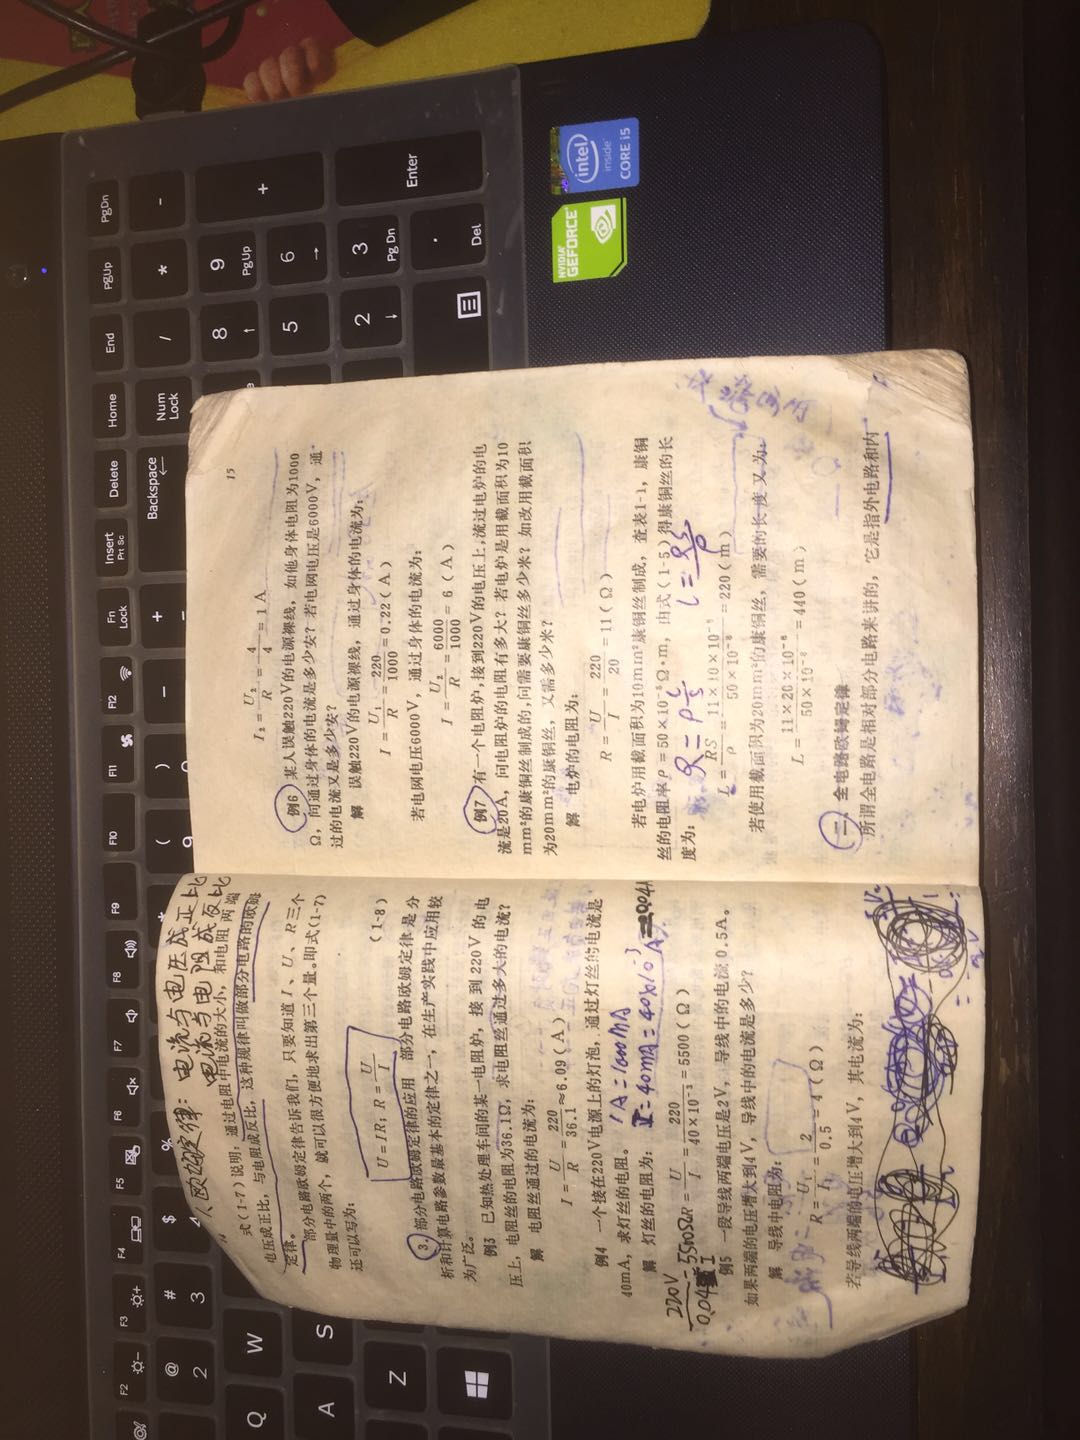 欧姆定律：电流与电压成正比
电流与电阻成反比
14
式(1-7)说明，通过电阻中电流的大小，和电阻两端
电压成正比，与电阻成反比，这种规律叫做部分电路的欧姆
定律。
部分电路欧姆定律告诉我们，只要知道I、U、R三个
物理量中的两个，就可以很方便地求出第三个量。即式(1-7)
还可以写为：
U=IR，R=U/I (1-8)
3. 部分电路欧姆定律的应用 部分电路欧姆定律是分
析和计算电路参数最基本的定律之一，在生产实践中应用较
为广泛。
例3 已知热处理车间的某一电阻炉，接到220V的电
压上，电阻丝的电阻为36.1Ω，求电阻丝通过多大的电流？
解 电阻丝通过的电流为：
I=U/R=220/36.1≈6.09(A)
例4 一个接在220V电源上的灯泡，通过灯丝的电流是
40mA，求灯丝的电阻。 1A=1000MA
解 灯丝的电阻为： I=40mA=40×10⁻³A=0.04A
R=U/I=220/40×10⁻³=5500(Ω)
220V/0.04=5500Ω
例5 一段导线两端电压是2V，导线中的电流0.5A。
如果两端的电压增大到4V，导线中的电流是多少？
解 导线中电阻为：
R=U₁/I₁=2/0.5=4(Ω)
若导线两端的电压增大到4V，其电流为：
15
I₂=U₂/R=4/4=1A
例6 某人误触220V的电源裸线，如他身体电阻为1000
Ω，问通过身体的电流是多少安？若电网电压是6000V，通
过的电流又是多少安？
解 误触220V的电源裸线，通过身体的电流为：
I=U₁/R=220/1000=0.22(A)
若电网电压6000V，通过身体的电流为：
I=U₂/R=6000/1000=6(A)
例7 有一个电阻炉，接到220V的电压上，流过电炉的电
流是20A，问电阻炉的电阻有多大？若电炉是用截面积为10
mm²的康铜丝制成的，问需要康铜丝多少米？如改用截面积
为20mm²的康铜丝，又需多少米？
解 电炉的电阻为：
R=U/I=220/20=11(Ω)
若电炉用截面积为10mm²康铜丝制成，查表1-1，康铜
丝的电阻率ρ=50×10⁻⁸Ω·m，由式(1-5)得康铜丝的长
度为： R=ρL/S L=RS/ρ
L=RS/ρ=11×10×10⁻⁶/50×10⁻⁸=220(m)
若使用截面积为20mm²的康铜丝，需要的长度又为：
L=11×20×10⁻⁶/50×10⁻⁸=440(m)
(二) 全电路欧姆定律
所谓全电路是相对部分电路来讲的，它是指外电路和内
intel inside CORE i5
NVIDIA GEFORCE
PgDn
PgUp
End
Home
Delete
Insert Prt Sc
Fn Lock
F12
F11
F10
F9
F8
F7
F6
F5
F4
F3
F2
Num Lock
Backspace
Enter
9 PgUp
6
3 Pg Dn
Del
8
5
2
Q
W
A
S
Z
@ 2
# 3
$ 4
%